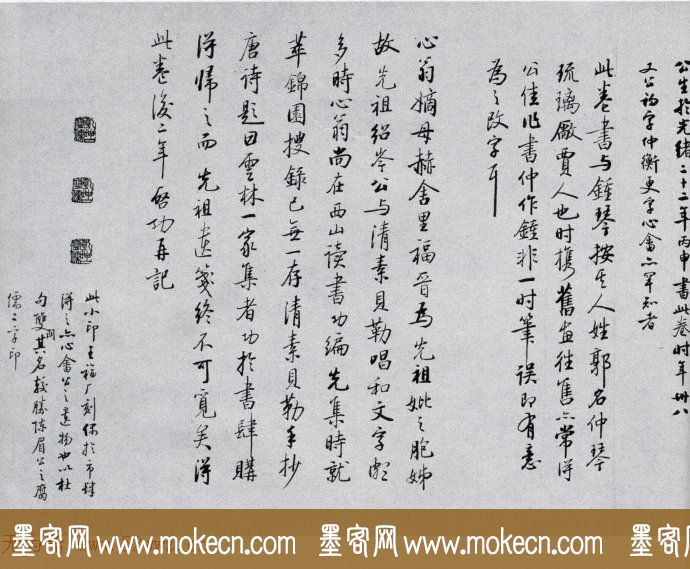 公生於光緒二十二年丙申書此卷时年卅八
又公初字仲衡更字心畬亦罕知者
此卷書与鍾琴按其人姓郭名仲琴
琉璃廠賈人也时携舊畫往售亦常得
公佳作書仲作鍾非一时筆误即有意
為之改字耳
心翁嫡母赫舍里福晉為先祖妣之胞姊
故先祖绍岑公与清素貝勒唱和文字頗
多时心翁尚在西山读書功编先集時就
萃錦園搜録已無一存清素貝勒手抄
唐诗题曰雲林一家集者功於書肆購
得归之而先祖遗笺终不可覓矣得
此卷後二年 啓功再記
此小印王福厂刻俱於市肆
得之亦心畬公之遺物也以杜
句雙關其名較勝陈眉公之腐
儒二字印
墨客网 www.mokecn.com 墨客网 www.mokecn.com